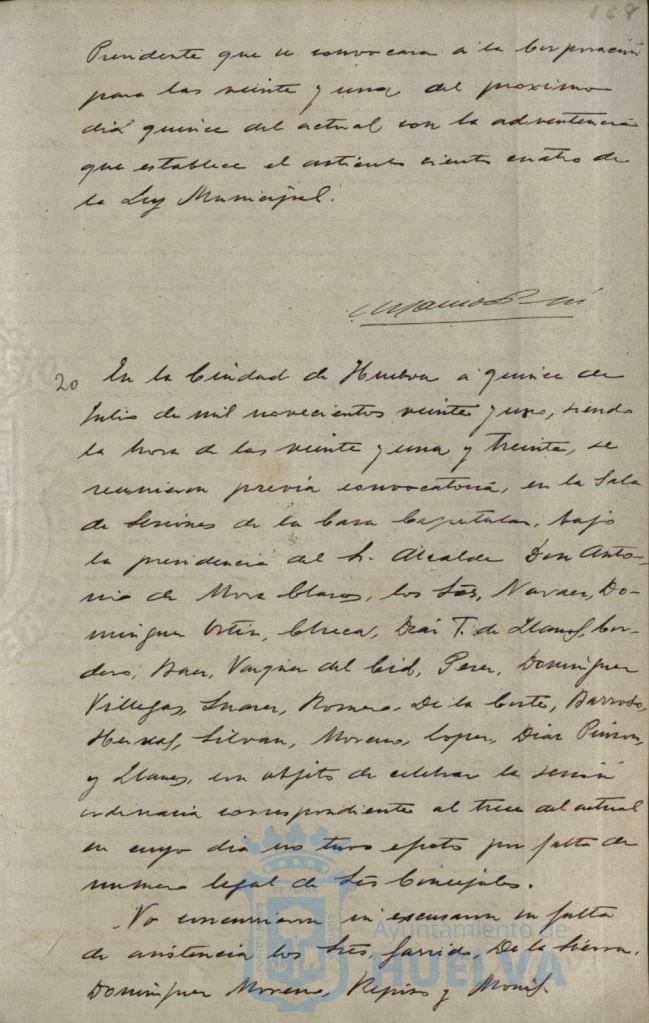 168
Presidente que se convocara á la Corporación
para las veinte y una del proximo
dia quince del actual con la advertencia
que establece el articulo ciento cuatro de
la Ley Municipal.
20 En la Ciudad de Huelva a quince de
Julio de mil novecientos veinte y uno, siendo
la hora de las veinte y una y treinta, se
reunieron previa convocatoria, en la Sala
de Sesiones de la Casa Capitular, bajo
la presidencia del Sr. Alcalde Don Anto-
nio de Mora Claros, los Sres. Narvaez, Do-
minguez Ortiz, Checa, Diaz T. de Llanos, Cor-
dero, Baez, Vazquez del Cid, Perez, Dominguez
Villegas, Suarez, Romero, De la Corte, Barroso,
Silvan, Moreno, Lopez, Diaz Pinzon,
y Llanes, con objeto de celebrar la sesión
ordinaria correspondiente al trece del actual
en cuyo dia no tuvo efecto por falta de
numero legal de Sres Concejales.
No concurrieron ni excusaron su falta
de asistencia los Sres Garrido, De la Sierra,
Dominguez Moreno, y
Ayuntamiento de
HUELVA